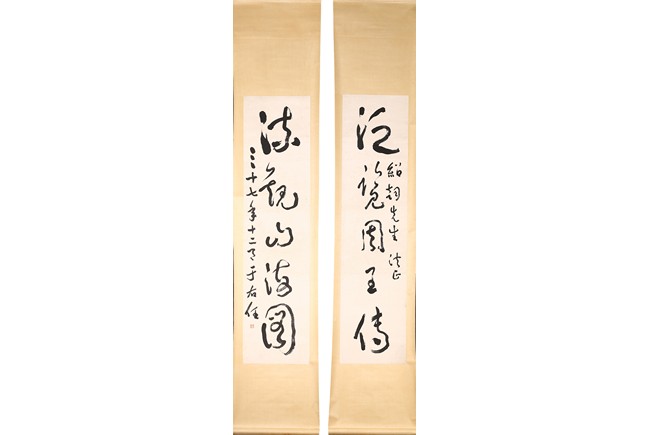 紹先生法正
泛覽周王傳
流觀山海圖
三十七年十二月于右任